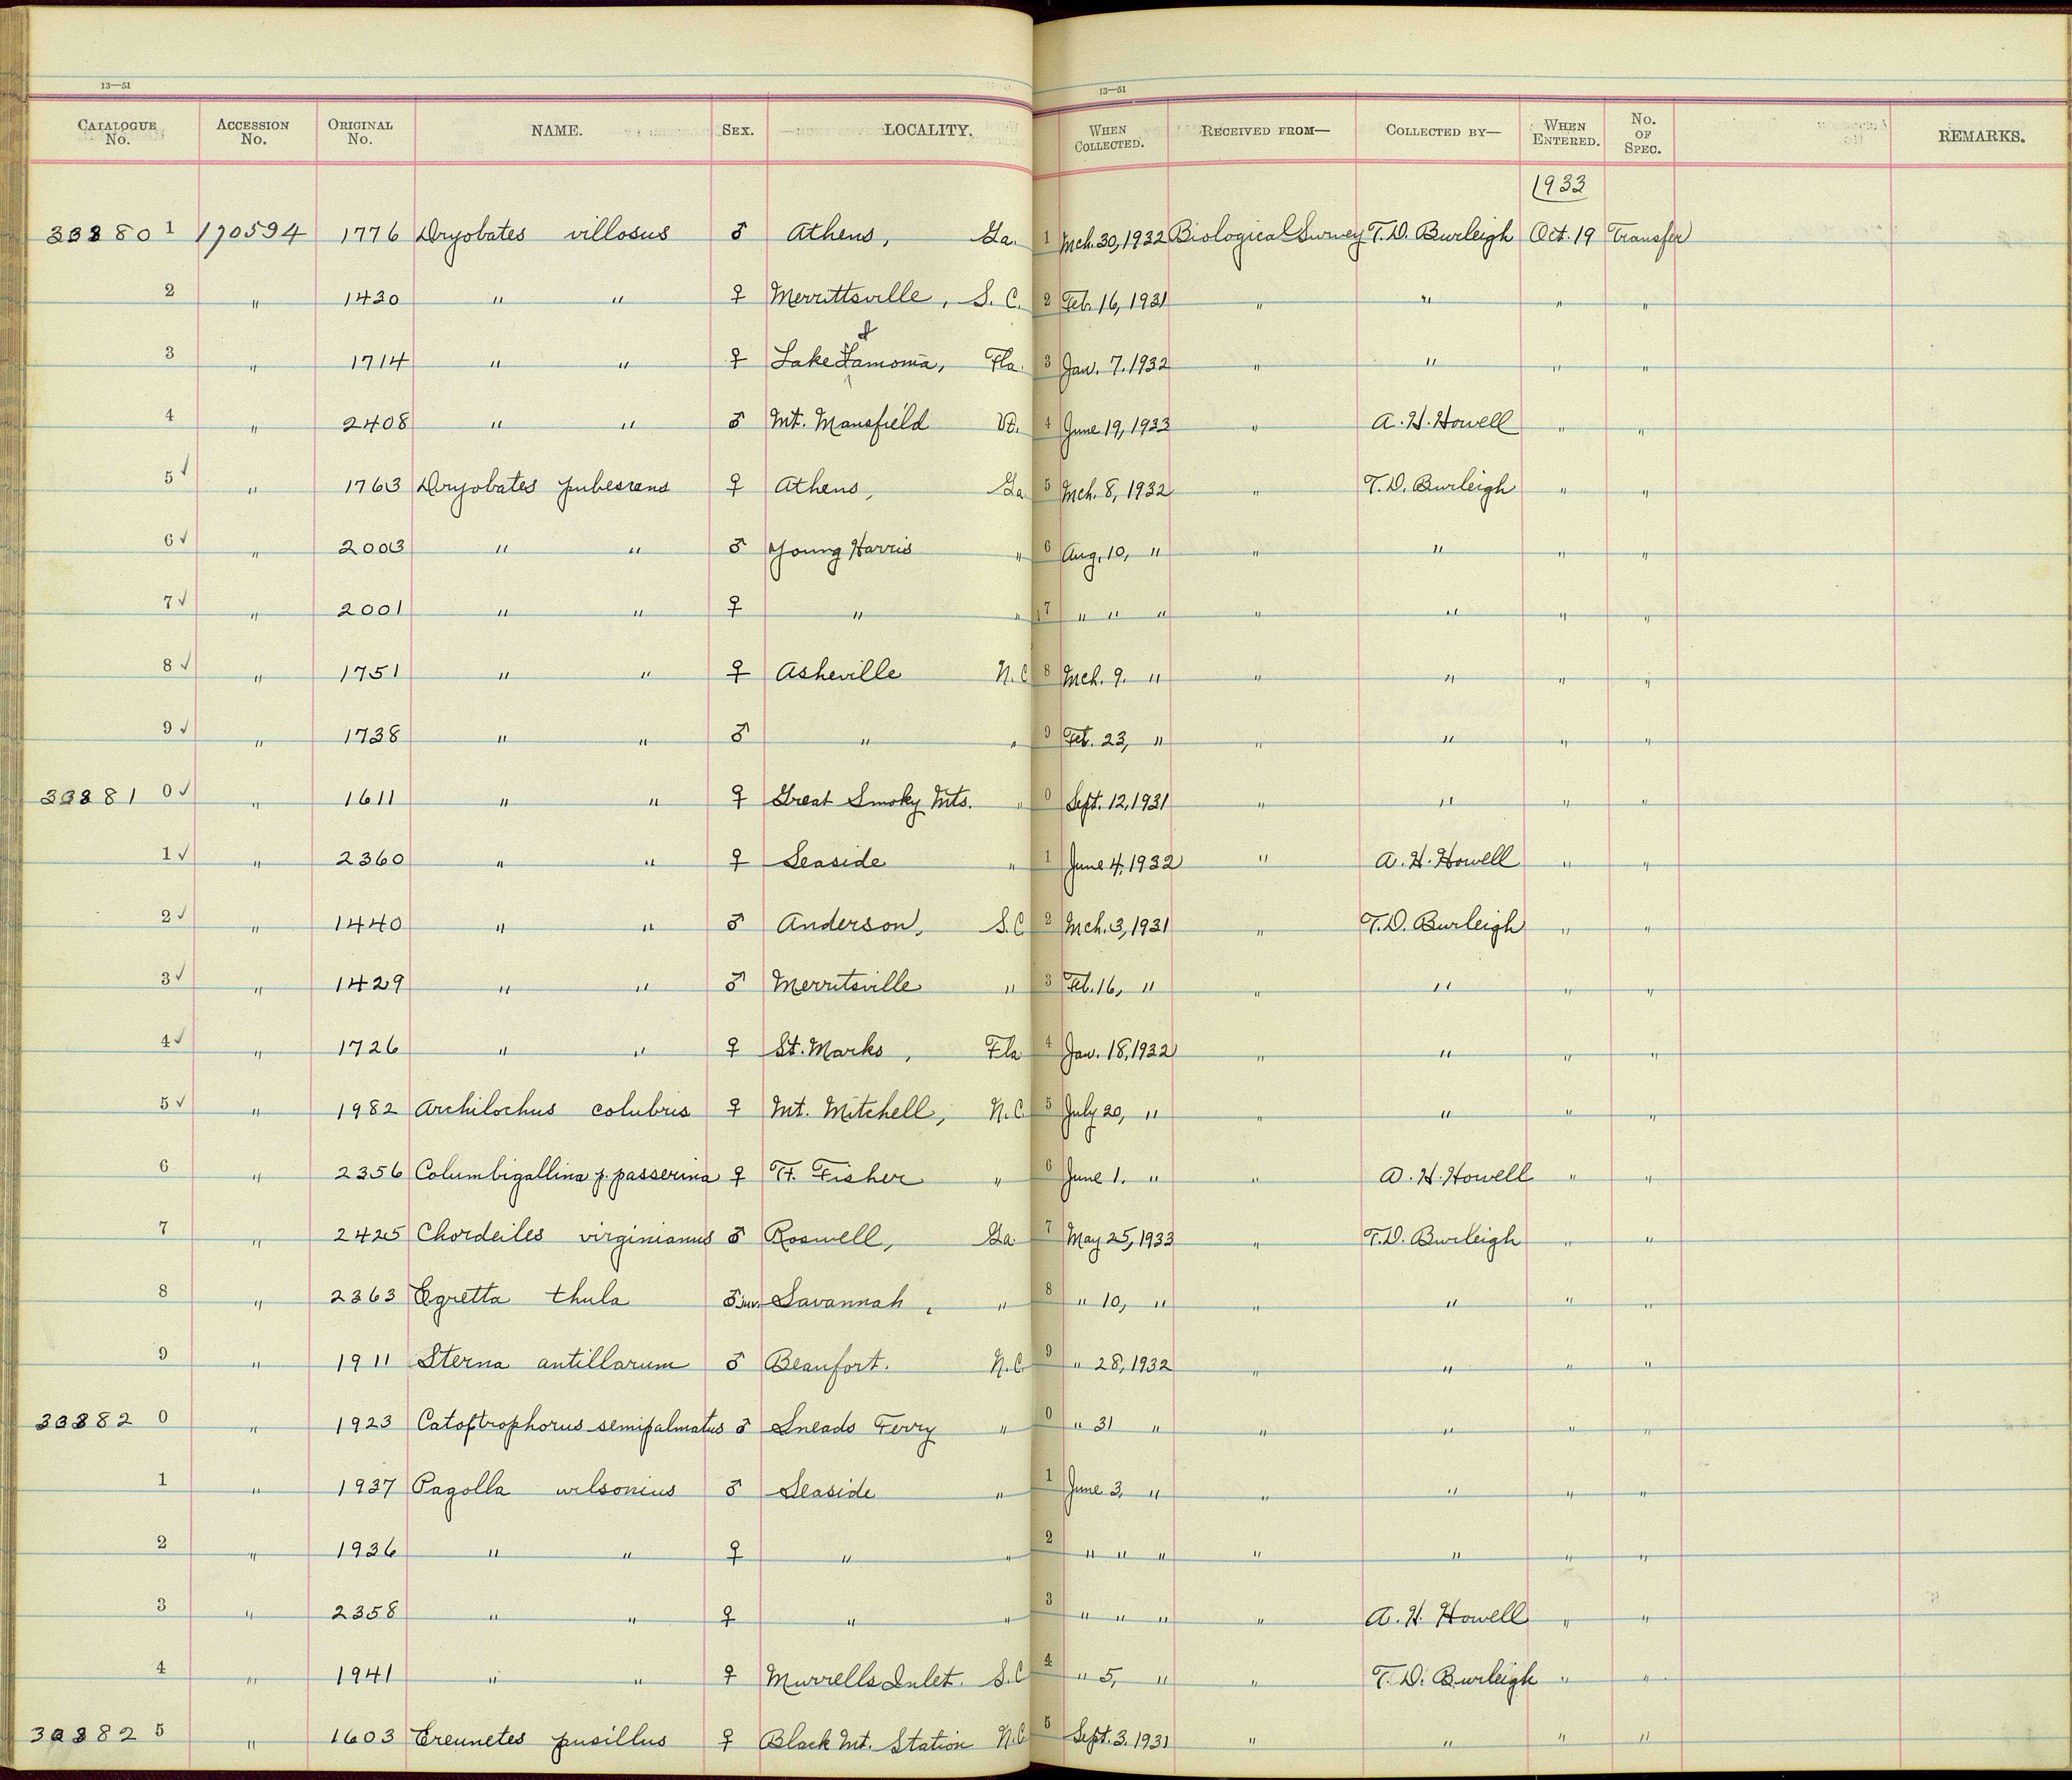 13—51 13—51
CATALOGUE No. ACCESSION No. ORIGINAL No. NAME. SEX. LOCALITY. WHEN COLLECTED. RECEIVED FROM— COLLECTED BY— WHEN ENTERED. No. OF SPEC. REMARKS.
1933
33380 1 170594 1776 Dryobates villosus ♂ Athens, Ga. 1 Mch. 30, 1932 Biological Survey T. D. Burleigh Oct. 19 Transfer
2 " 1430 " " ♀ Merrittsville, S. C. 2 Feb. 16, 1931 " " " "
3 " 1714 " " ♀ Lake Iamonia, Fla. 3 Jan. 7, 1932 " " " "
4 " 2408 " " ♂ Mt. Mansfield Vt. 4 June 19, 1933 " A. H. Howell " "
5 ✓ " 1763 Dryobates pubescens ♀ Athens, Ga. 5 Mch. 8, 1932 " T. D. Burleigh " "
6 ✓ " 2003 " " ♂ Young Harris " 6 Aug. 10, " " " " "
7 ✓ " 2001 " " ♀ " " 7 " " " " " " "
8 ✓ " 1751 " " ♀ Asheville N.C 8 Mch. 9. " " " " "
9 ✓ " 1738 " " ♂ " " 9 Feb. 23, " " " " "
33381 0 ✓ " 1611 " " ♀ Great Smoky Mts. " 0 Sept. 12, 1931 " " " "
1 ✓ " 2360 " " ♀ Seaside " 1 June 4, 1932 " A. H. Howell " "
2 ✓ " 1440 " " ♂ Anderson, S.C 2 Mch. 3, 1931 " T. D. Burleigh " "
3 ✓ " 1429 " " ♂ Merritsville " 3 Feb. 16, " " " " "
4 ✓ " 1726 " " ♀ St. Marks, Fla 4 Jan. 18, 1932 " " " "
5 ✓ " 1982 Archilochus colubris ♀ Mt. Mitchell, N.C. 5 July 20, " " " " "
6 " 2356 Columbigallina p. passerina ♀ Ft. Fisher " 6 June 1. " " A. H. Howell " "
7 " 2425 Chordeiles virginianus ♂ Roswell, Ga. 7 May 25, 1933 " T. D. Burleigh " "
8 " 2363 Egretta thula ♂ juv. Savannah, " 8 " 10, " " " " "
9 " 1911 Sterna antillarum ♂ Beaufort. N.C. 9 " 28, 1932 " " " "
33382 0 " 1923 Catoptrophorus semipalmatus ♂ Sneads Ferry " 0 " 31 " " " " "
1 " 1937 Pagolla wilsonius ♂ Seaside " 1 June 3, " " " " "
2 " 1936 " " ♀ " " 2 " " " " " " "
3 " 2358 " " ♀ " " 3 " " " " A. H. Howell " "
4 " 1941 " " ♀ Murrells Inlet. S.C 4 " 5, " " T. D. Burleigh " "
33382 5 " 1603 Ereunetes pusillus ♀ Black Mt. Station N.C 5 Sept. 3. 1931 " " " "